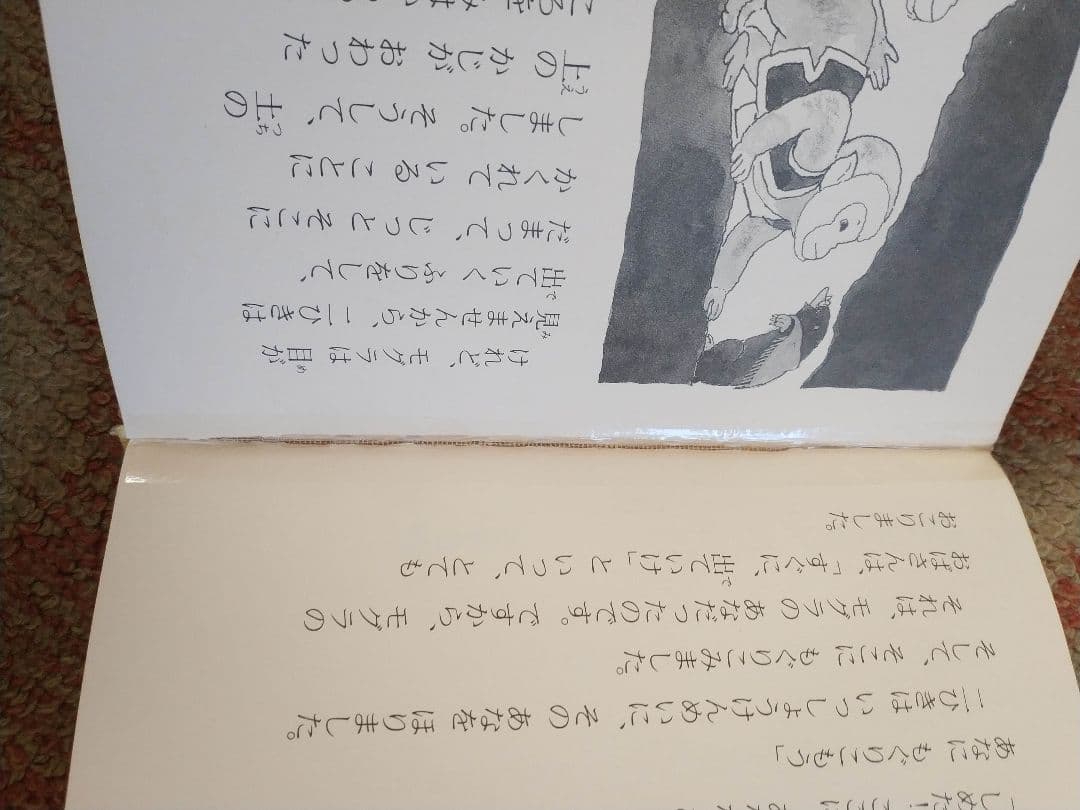 「しめた！
あなに もぐりこもう」
二ひきは いっしょうけんめいに、その あなを ほりました。
そして、そこに もぐりこみました。
それは、モグラの あなだったのです。ですから、モグラの
おばさんは、「すぐに、出ていけ」と いって、とても
おこりました。
けれど、モグラは 目が
見えませんから、二ひきは
出ていく ふりをして、
だまって、じっと そこに
かくれて いる ことに
しました。そうして、土の
上の かじが おわった